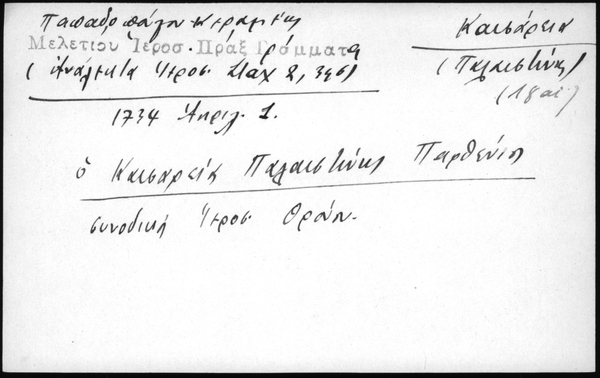 Παπαδοπούλου Κεραμέως
Μελετίου Ἱεροσ. Πράξ Γράμματα
(Ἀνάλεκτα Ἱεροσ. Σταχ 2, 395)
Καισάρεια
(Παλαιστίνης)
(18 αἰ)
1734 Ἀπριλ. 1.
ὁ Καισαρείας Παλαιστίνης Παρθένιος
συνοδικὴ Ἱεροσ Θρόνου.